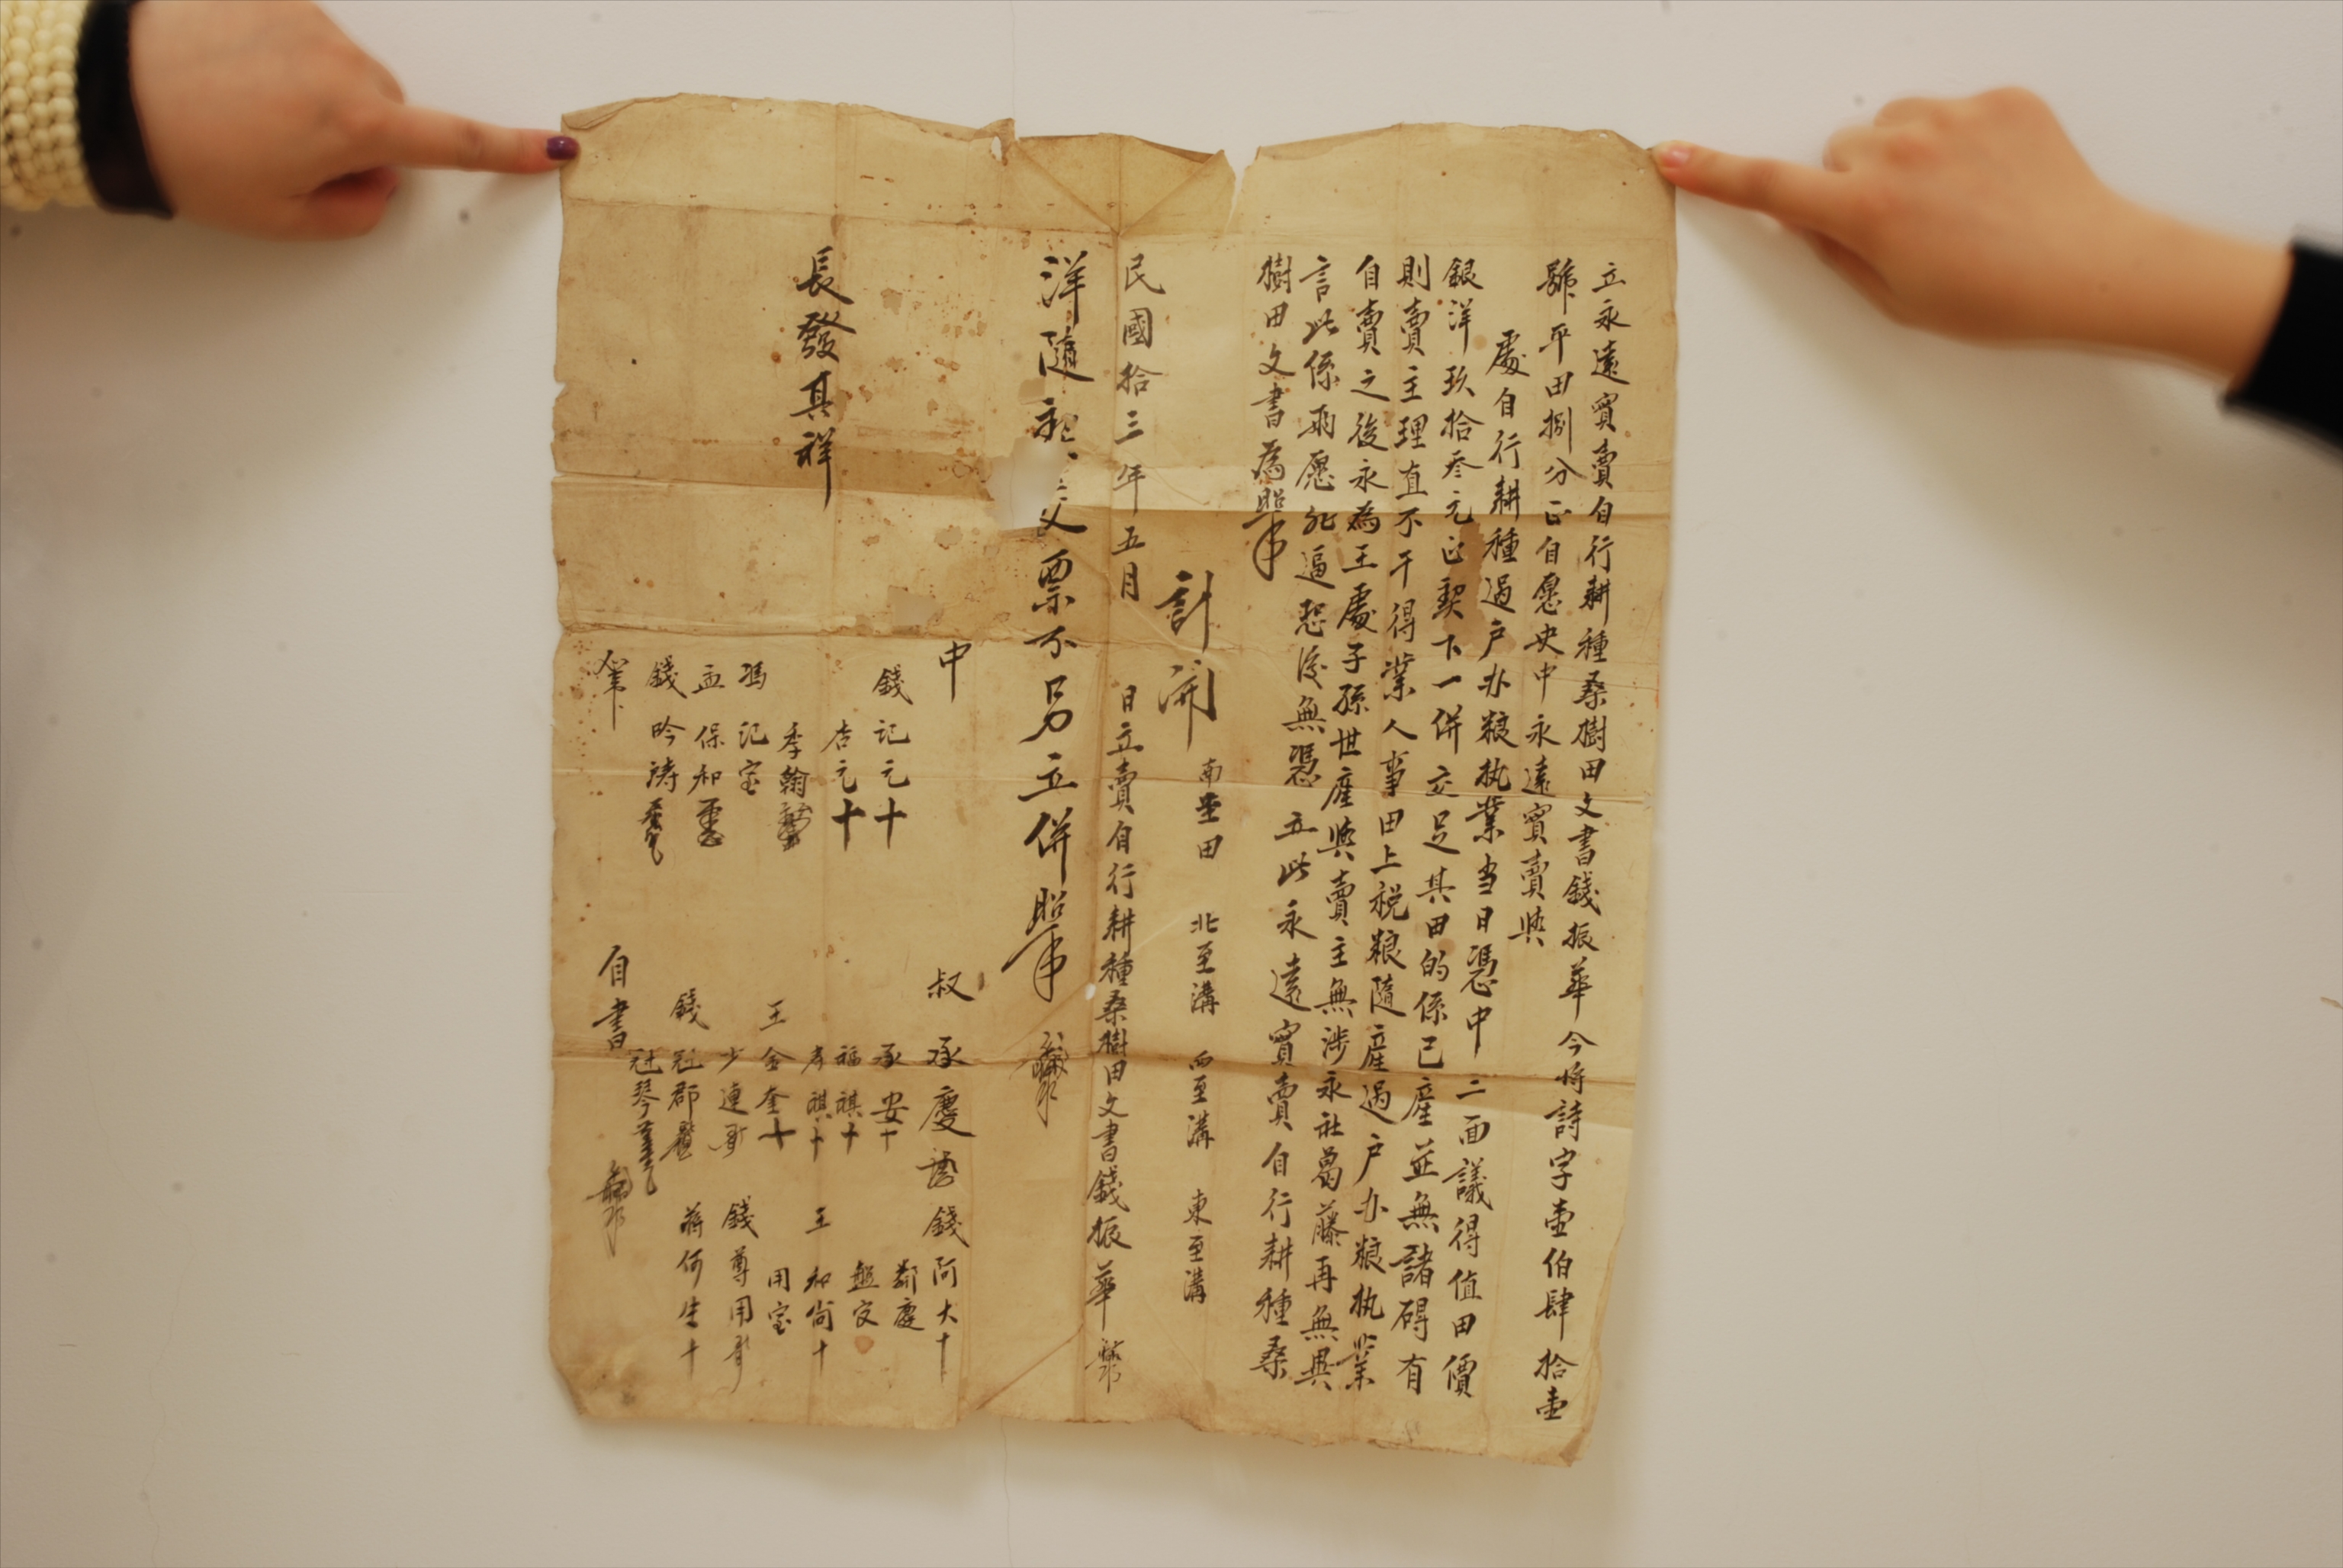 立永遠賣賣自行耕種桑樹田文書錢振華今將詩字壹伯肆拾壹
號平田捌分正自愿央中永遠賣賣與
處自行耕種過户办粮执業当日憑中三面議得值田價
銀洋玖拾叁元正契下一併交足其田的係己產並無諸碍有
則賣主理直不干得業人事田上税粮隨產過户办粮执業
自賣之後永為王處子孫世產與賣主無涉永社葛藤再無異
言此係兩愿非逼恐後無憑立此永遠賣賣自行耕種桑
樹田文書為照
計開
南至田 北至溝 西至溝 東至溝
民國拾三年五月 日立賣自行耕種桑樹田文書錢振華
洋隨 交票不另立併照
中 叔承慶 錢阿大十
錢记元十 承安十 鄰慶
杏元十 福祺十
季翰 孝祺十 王和尚十
馮记宝 王金奎十 用宝
孟保和 少連 錢尊用
錢吟濤 錢冠郡 蔣何生十
冠琴
自書
長發其祥